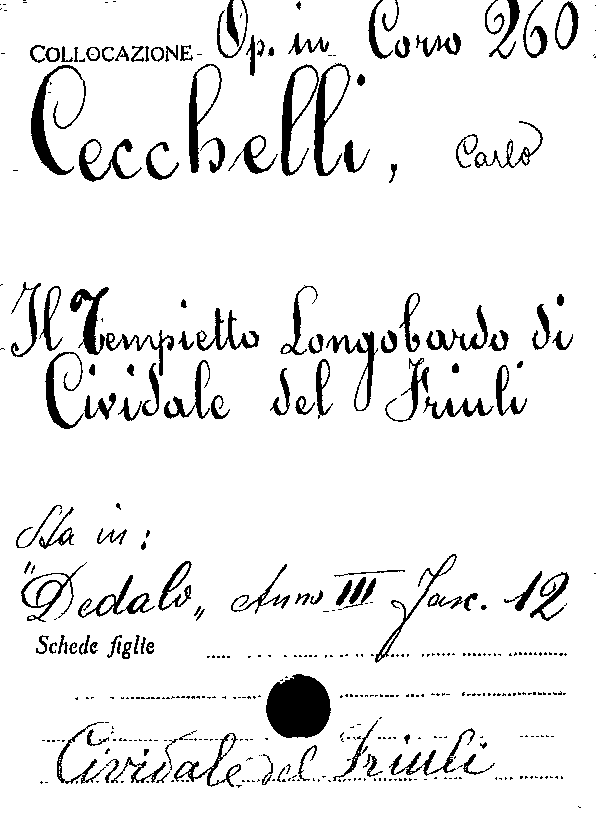 COLLOCAZIONE Op. in Corso 260
Cecchelli, Carlo
Il Tempietto Longobardo di
Cividale del Friuli
Sta in:
"Dedalo„ Anno III Fasc. 12
Schede figlie
Cividale del Friuli